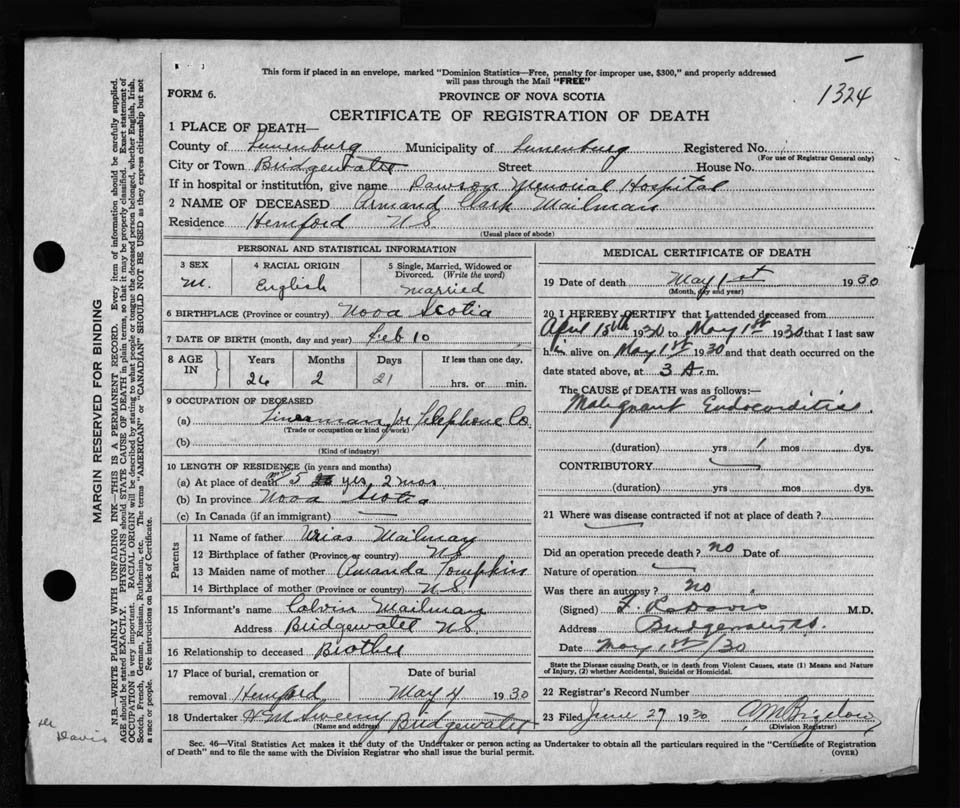 This form if placed in an envelope, marked "Dominion Statistics—Free, penalty for improper use, $300," and properly addressed
will pass through the Mail "FREE"
FORM 6.
PROVINCE OF NOVA SCOTIA
1324
CERTIFICATE OF REGISTRATION OF DEATH
1 PLACE OF DEATH—
County of Lunenburg Municipality of Lunenburg Registered No.
(For use of Registrar General only)
City or Town Bridgewater Street House No.
If in hospital or institution, give name Dawson Memorial Hospital
2 NAME OF DECEASED Armand Clark Mailman
Residence Hemford N.S.
(Usual place of abode)
PERSONAL AND STATISTICAL INFORMATION
3 SEX 4 RACIAL ORIGIN 5 Single, Married, Widowed or
Divorced. (Write the word)
M. English married
6 BIRTHPLACE (Province or country) Nova Scotia
7 DATE OF BIRTH (month, day and year) Feb 10
8 AGE IN Years Months Days If less than one day,
26 2 21 hrs. or min.
9 OCCUPATION OF DECEASED
(a) Linerman for Telephone Co.
(Trade or occupation or kind of work)
(b)
(Kind of industry)
10 LENGTH OF RESIDENCE (in years and months)
(a) At place of death 5 yrs, 2 mos
(b) In province Nova Scotia
(c) In Canada (if an immigrant)
Parents
11 Name of father Urias Mailman
12 Birthplace of father (Province or country) N.S.
13 Maiden name of mother Amanda Tompkins
14 Birthplace of mother (Province or country) N.S.
15 Informant's name Calvin Mailman
Address Bridgewater N.S.
16 Relationship to deceased Brother
17 Place of burial, cremation or Date of burial
removal Hemford May 4 1930
18 Undertaker Sweeny Bridgewater
(Name and address)
MEDICAL CERTIFICATE OF DEATH
19 Date of death May 1st 1930
(Month, day and year)
20 I HEREBY CERTIFY that I attended deceased from
April 15th 1930 to May 1st 1930 that I last saw
him alive on May 1st 1930 and that death occurred on the
date stated above, at 3 A.m.
The CAUSE of DEATH was as follows:—
Malignant Endocarditis
(duration) yrs 1 mos dys.
CONTRIBUTORY
(duration) yrs mos dys.
21 Where was disease contracted if not at place of death?
Did an operation precede death? no Date of
Nature of operation
Was there an autopsy? no
(Signed) Davis M.D.
Address Bridgewater
Date May 1st/30
State the Disease causing Death, or in death from Violent Causes, state (1) Means and Nature
of Injury, (2) whether Accidental, Suicidal or Homicidal.
22 Registrar's Record Number
23 Filed June 27 1930 A M Bigelow
(Division Registrar)
Sec. 46—Vital Statistics Act makes it the duty of the Undertaker or person acting as Undertaker to obtain all the particulars required in the "Certificate of Registration
of Death" and to file the same with the Division Registrar who shall issue the burial permit.
(OVER)
MARGIN RESERVED FOR BINDING
N.B.—WRITE PLAINLY WITH UNFADING INK—THIS IS A PERMANENT RECORD. Every item of information should be carefully supplied.
AGE should be stated EXACTLY. PHYSICIANS should STATE CAUSE OF DEATH in plain terms, so that it may be properly classified. Exact statement of
OCCUPATION is very important. RACIAL ORIGIN will be described by stating to what people or tongue the deceased person belonged, whether English, Irish,
Scotch, French, German, Russian, Ruthenian, etc. The terms "AMERICAN" or "CANADIAN" SHOULD NOT BE USED as they express citizenship but not
a race or people. See instructions on back of Certificate.
Davis